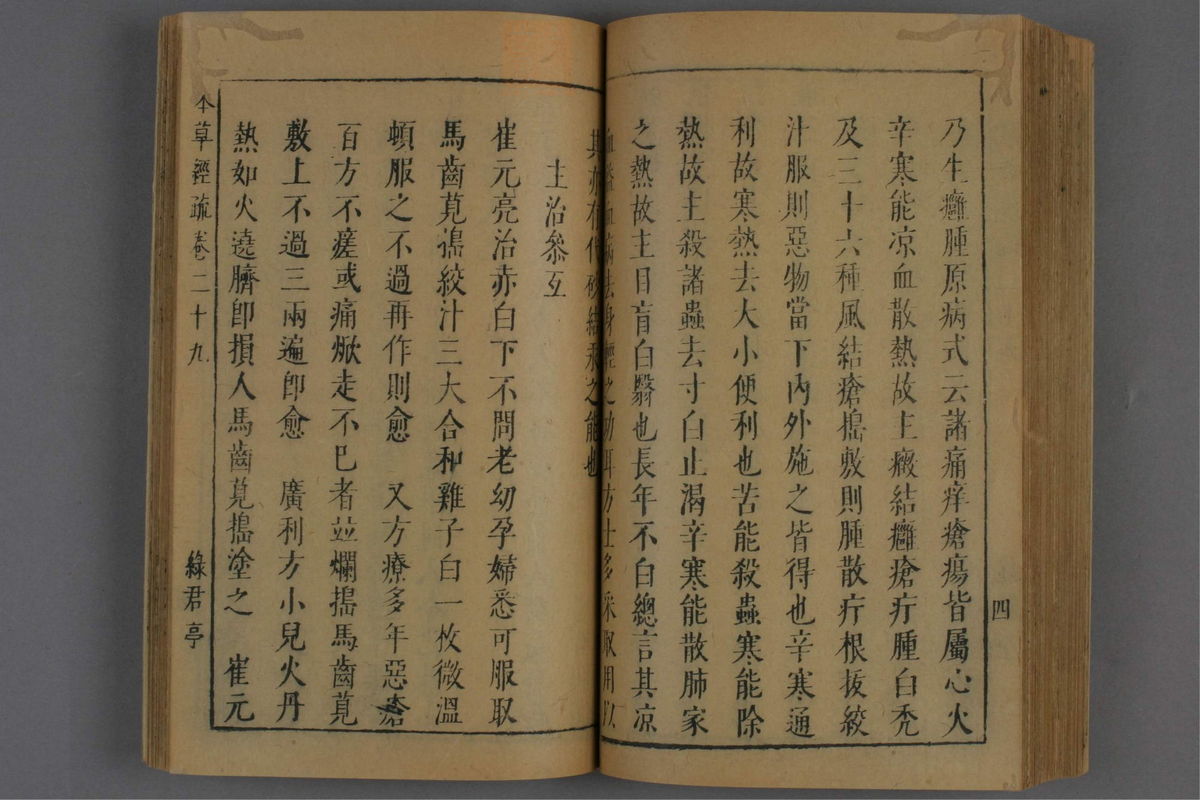 四
乃生癰腫原病式云諸痛痒瘡瘍皆屬心火
辛寒能凉血散熱故主癥結癰瘡疔腫白禿
及三十六種風結瘡搗敷則腫散疔根拔絞
汁服則惡物當下內外施之皆得也辛寒通
利故寒熱去大小便利也苦能殺蟲寒能除
熱故主殺諸蟲去寸白止渴辛寒能散肺家
之熱故主目盲白翳也長年不白總言其凉
血益血病去身輕之功耳方士多采取用以
其亦有伏砂結汞之能也
主治參互
崔元亮治赤白下不問老幼孕婦悉可服取
馬齒莧搗絞汁三大合和雞子白一枚微溫
頓服之不過再作則愈 又方療多年惡瘡
百方不瘥或痛焮走不巳者並爛搗馬齒莧
敷上不過三兩遍卽愈 廣利方小兒火丹
熱如火遶臍卽損人馬齒莧搗塗之 崔元
本草經疏 卷二十九 綠君亭